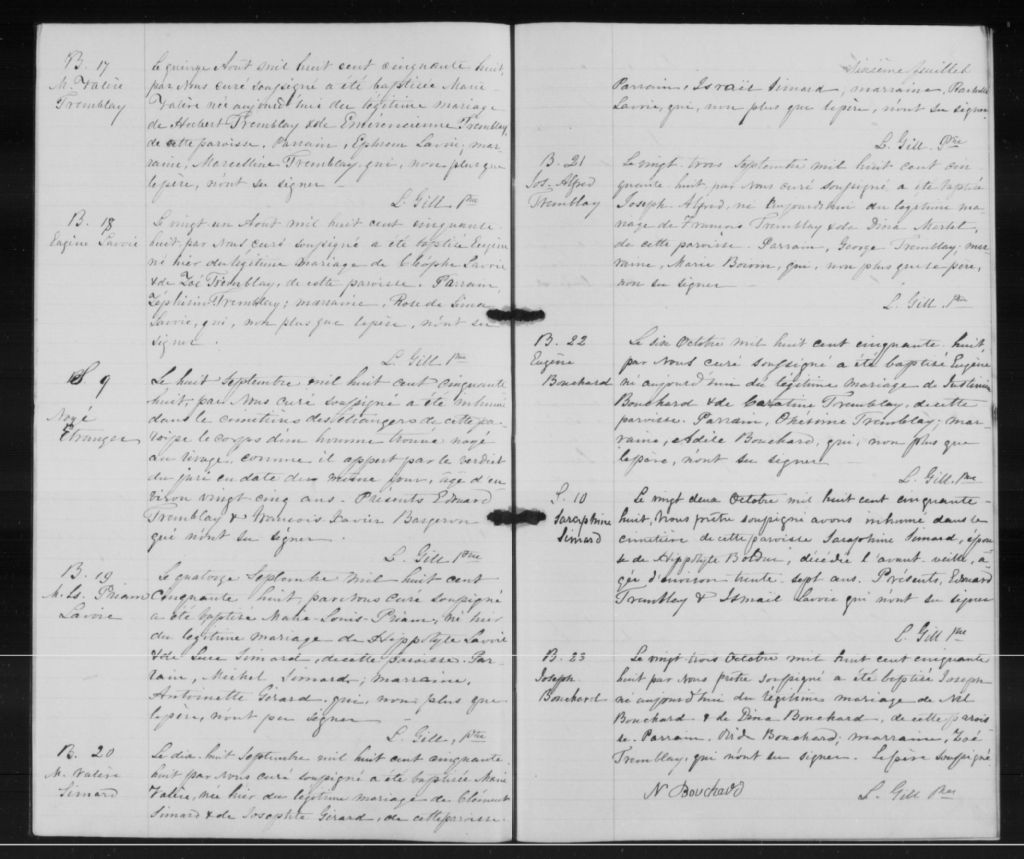 B. 17
M. Valère
Tremblay
Le quinze Août mil huit cent cinquante huit,
par Nous curé soussigné a été baptisée Marie
Valère née aujourd'hui du légitime mariage
de Hubert Tremblay & de Emérencienne Tremblay,
de cette paroisse. Parrain, Ephrem Lavoie, mar-
raine, Marcelline Tremblay, qui, non plus que
le père, n'ont su signer
L. Gill Ptre
B. 18
Eugène Lavoie
Le vingt un Août mil huit cent cinquante
huit par Nous curé soussigné a été baptisé Eugène
né hier du légitime mariage de Cléophe Lavoie
& de Zoé Tremblay, de cette paroisse. Parrain,
Zéphirin Tremblay; marraine, Rose de Lima
Lavoie, qui, non plus que le père, n'ont su
signer.
L. Gill Ptre
S 9
Noyé
Etranger
Le huit Septembre mil huit cent cinquante
huit, par Nous curé soussigné a été inhumé
dans le cimetière des étrangers de cette pa-
roisse le corps d'un homme trouvé noyé
au rivage, comme il appert par le verdict
du juré en date du même jour, âgé d'en
viron vingt cinq ans. Présents Edouard
Tremblay & François Xavier Bergeron
qui n'ont su signer.
L. Gill Ptre
B. 19
M. Ls. Priam
Lavoie
Le quatorze Septembre mil huit cent
cinquante huit, par Nous curé soussigné
a été baptisé Marie-Louis-Priam, né hier
du légitime mariage de Hippolyte Lavoie
& de Luce Simard, de cette paroisse. Par
rain, Michel Simard; marraine,
Antoinette Girard, qui, non plus que
le père, n'ont pu signer
L. Gill, Ptre
B. 20
M. Valère
Simard
Le dix huit Septembre mil huit cent cinquante
huit par Nous curé soussigné a été baptisée Marie
Valère, née hier du légitime mariage de Clément
Simard & de Josephte Girard, de cette paroisse.
Sixième feuillet
Parrain Israël Simard, marraine,
Lavoie, qui, non plus que le père, n'ont su signer
L. Gill Ptre
B. 21
Jos. Alfred
Tremblay
Le vingt trois Septembre mil huit cent cin
quante huit par Nous curé soussigné a été baptisé
Joseph Alfred, né aujourd'hui du légitime ma-
riage de François Tremblay & de Dina Martel,
de cette paroisse. Parrain, George Tremblay mar-
raine, Marie Boivin, qui, non plus que le père,
n'on su signer
L. Gill Ptre
B. 22
Eugène
Bouchard
Le six Octobre mil huit cent cinquante huit
par Nous curé soussigné a été baptisé Eugène
né aujourd'hui du légitime mariage de
Bouchard & de Caroline Tremblay, de cette
paroisse. Parrain, Onésime Tremblay; mar-
raine, Adèle Bouchard, qui, non plus que
le père, n'ont su signer
L. Gill, Ptre
S. 10
Saraphine
Simard
Le vingt deux Octobre mil huit cent cinquante-
huit, Nous prêtre soussigné avons inhumé dans le
cimetière de cette paroisse Saraphine Simard, épou
se de Hippolyte Bolduc, décédée l'avant veille, â-
gée d'environ trente sept ans. Présents, Edouard
Tremblay & Ismaïl Lavoie qui n'ont su signer
L. Gill Ptre
B. 23
Joseph
Bouchard
Le vingt trois Octobre mil huit cent cinquante
huit par Nous prêtre soussigné a été baptisé Joseph
né aujourd'hui du légitime mariage de Nil
Bouchard & de Dina Bouchard, de cette parois
se. Parrain, Bouchard; marraine, Zoé
Tremblay, qui n'ont su signer. Le père soussigné
N Bouchard
L. Gill Ptre